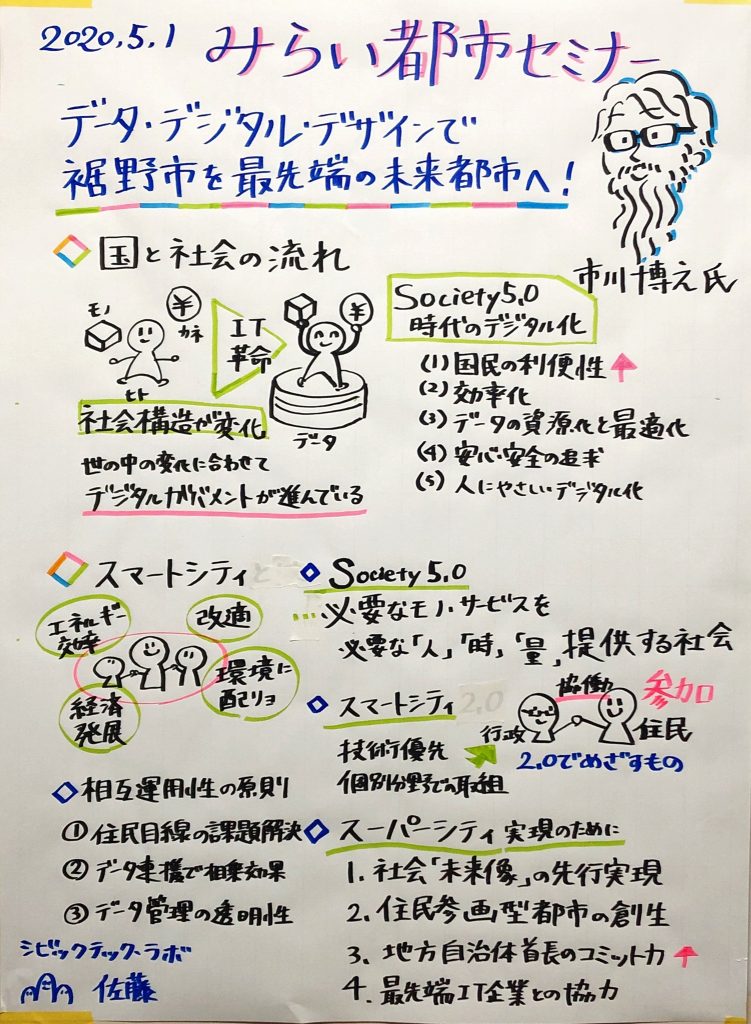 2020.5.1 みらい都市セミナー
データ・デジタル・デザインで
裾野市を最先端の未来都市へ!
市川博之氏
国と社会の流れ
モノ
¥
カネ
ヒト
IT
革命
¥
データ
社会構造が変化
世の中の変化に合わせて
デジタルガバメントが進んでいる
Society5.0
時代のデジタル化
(1) 国民の利便性↑
(2) 効率化
(3) データの資源化と最適化
(4) 安心・安全の追求
(5) 人にやさしいデジタル化
スマートシティ
エネルギー
効率
改適
経済
発展
環境に
配リョ
Society 5.0
…必要なモノ・サービスを
必要な「人」「時」「量」提供する社会
スマートシティ 2.0
技術優先
個別分野での取組
協働力
参加
行政
住民
2.0でめざすもの
相互運用性の原則
① 住民目線の課題解決
② データ連携で相乗効果
③ データ管理の透明性
スーパーシティ 実現のために
1. 社会「未来像」の先行実現
2. 住民参画型都市の創生
3. 地方自治体首長のコミット力↑
4. 最先端IT企業との協力
シビックテック・ラボ
佐藤